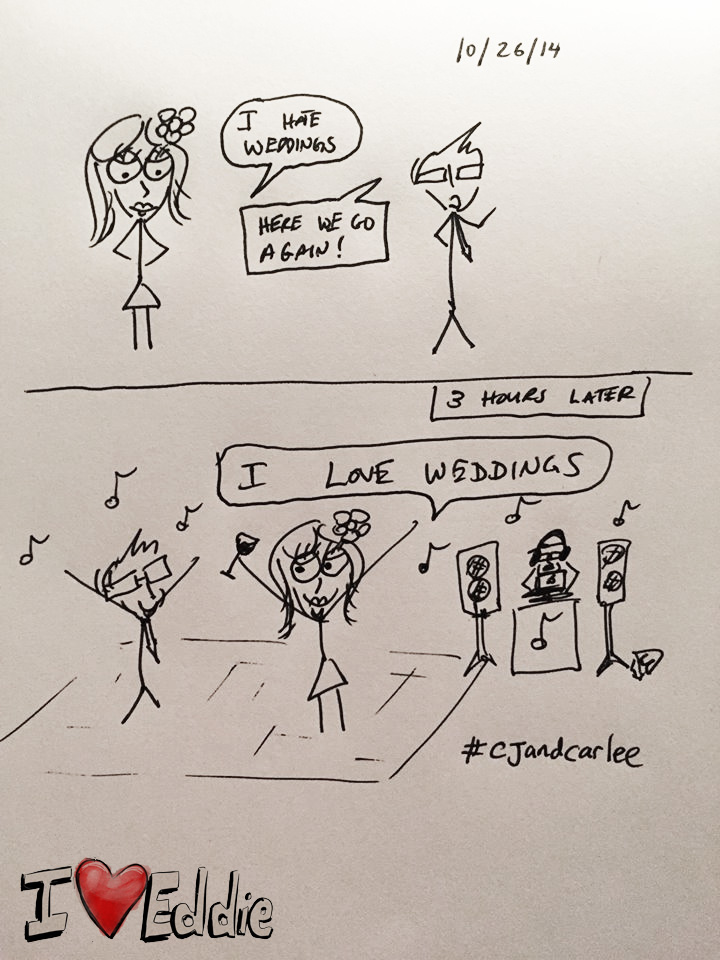 10/26/14
I HATE
WEDDINGS
HERE WE GO
AGAIN!
3 HOURS LATER
I LOVE WEDDINGS
#cJandcarlee
I ❤ Eddie